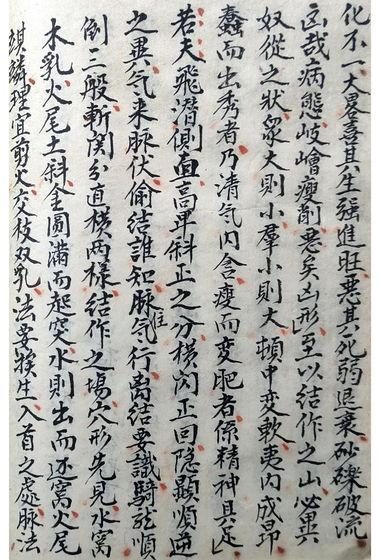 化不一大畧喜其生强進旺惡其死弱退衰砂礫破流
凶哉病態岐嶒瘦削惡矣凶形至以結作之山必異
奴從之狀衆大則小羣小則大頓中變軟夷内成昂
蠢而出秀者乃清气内含瘦而變肥者係精神具足
若夫飛潛側面高卑斜正之分橫閃正回隐顯順逆
之異气来脉伏偷結誰知脉气住行离結要識騎龍順
倒三般斬関分直横两樣結作之場穴形先見水窩
木乳火尾土斜金圓滿而起突水則出而还窩火尾
理宜剪火交枝双乳法要挨生入首之處脉法